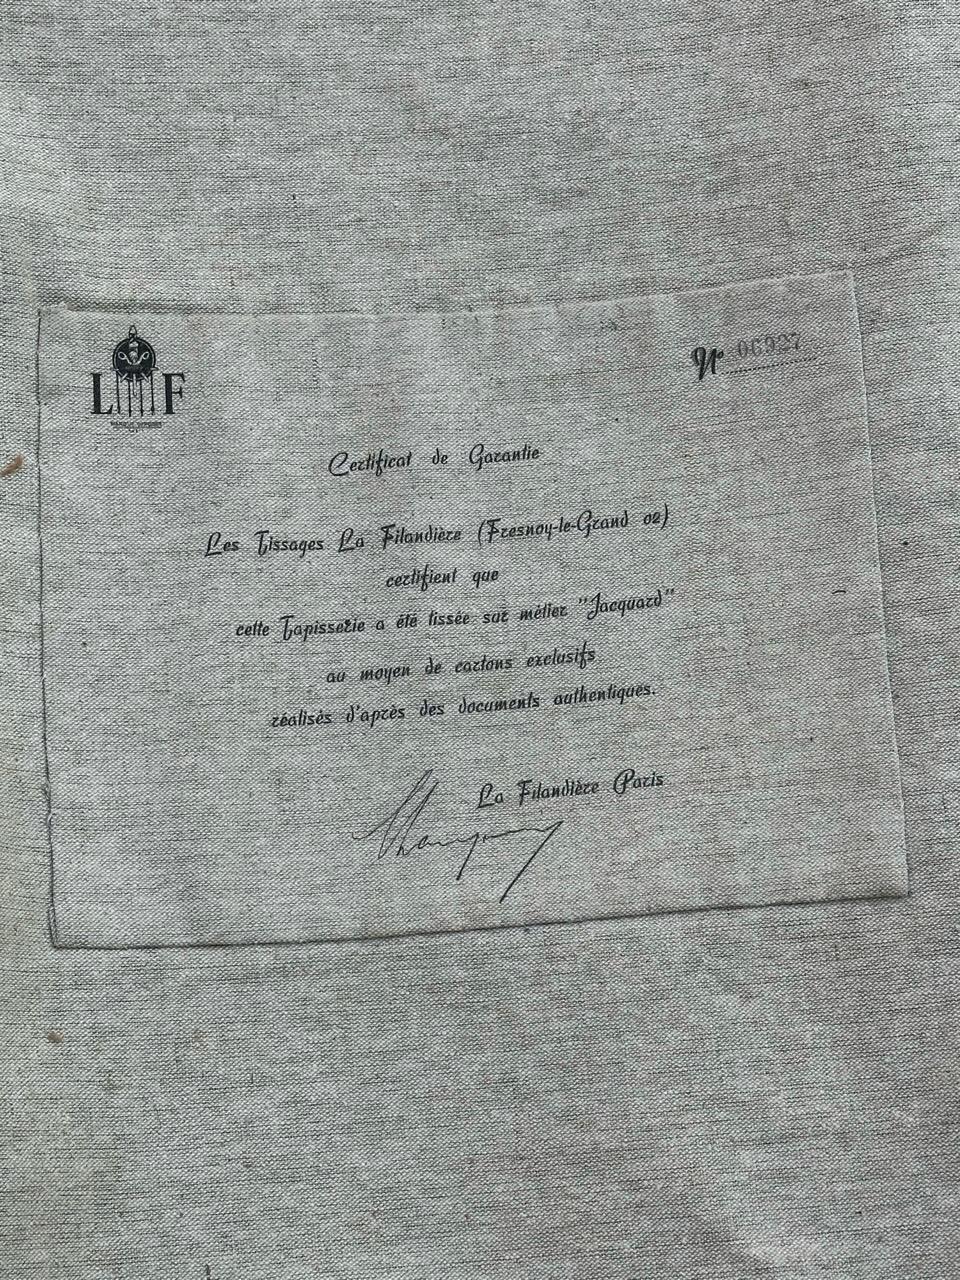 L F
N° 06927
Certificat de Garantie
Les Tissages La Filandière (Fresnoy-le-Grand 02)
certifient que
cette Tapisserie a été tissée sur métier "Jacquard"
au moyen de cartons exclusifs
réalisés d'après des documents authentiques.
La Filandière Paris